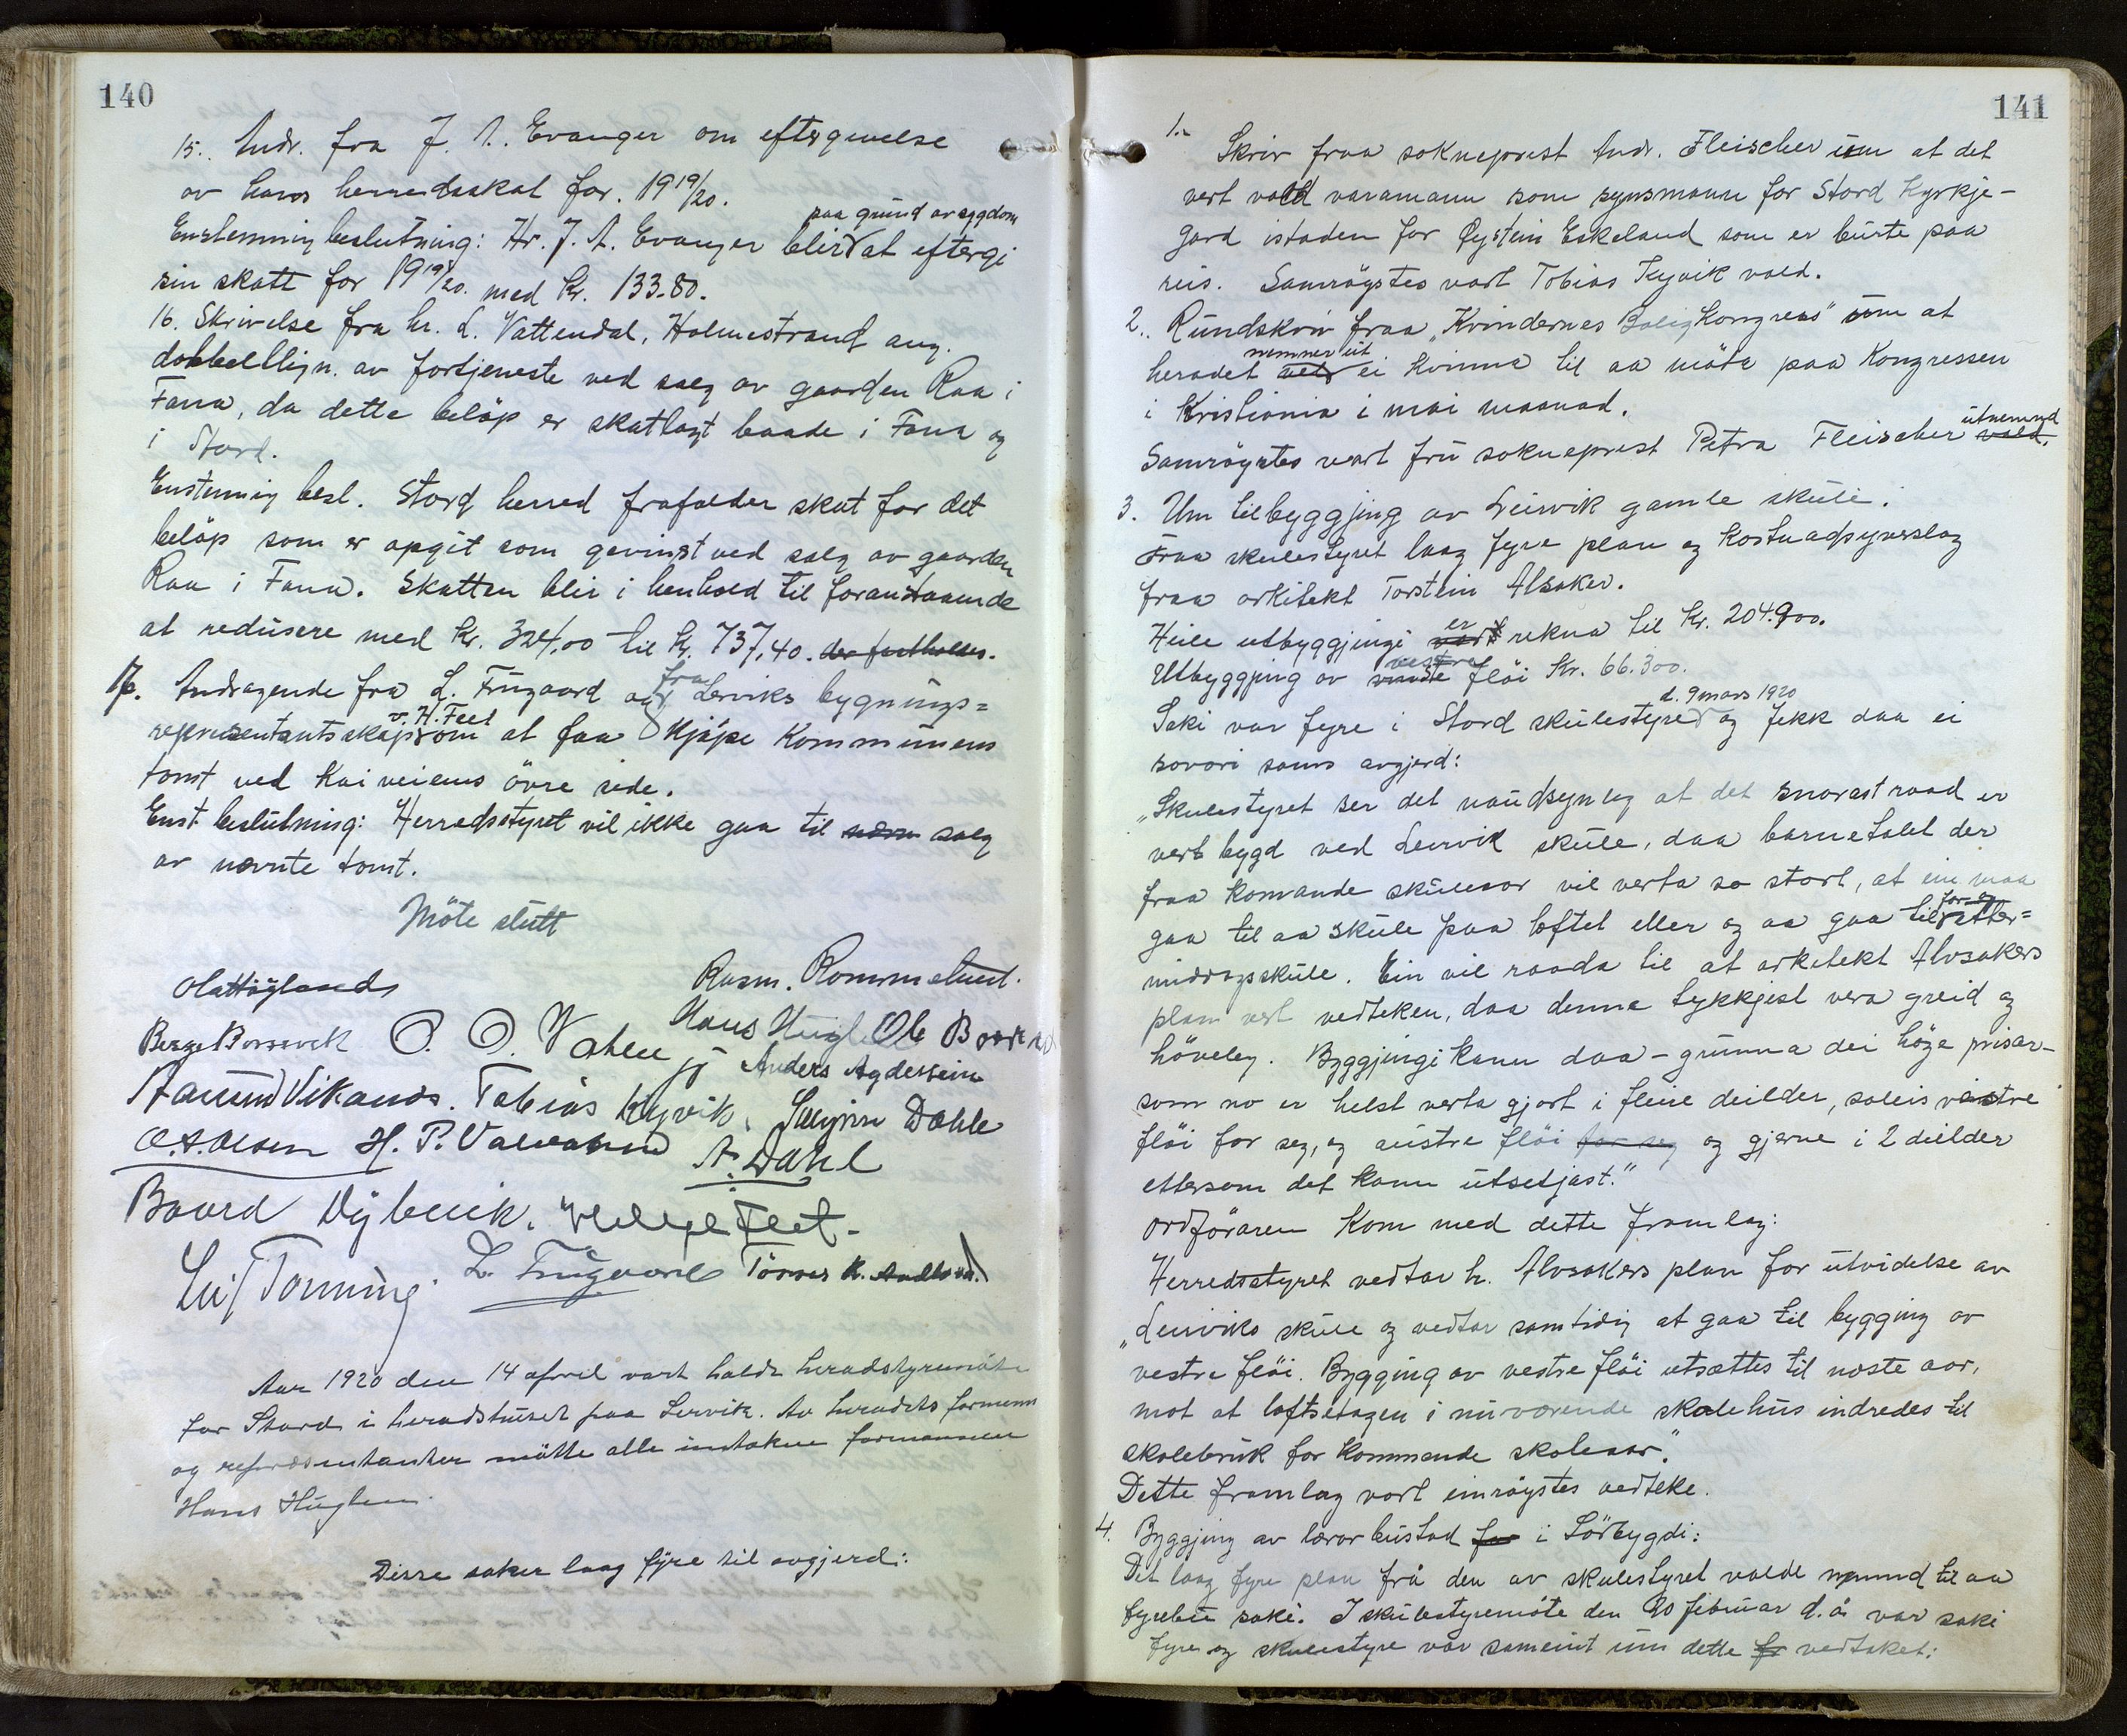 140
15. Andr. fra J. A. Evanger om eftergivelse
av hans herredsskat for. 1919/20.
paa grund av sygdom
Enstemmig beslutning: Hr. J. A. Evanger blir at eftergi
sin skatt for 1919/20. med kr. 133.80.
16. Skrivelse fra hr. L. Vattendal, Holmestrand ang.
dobbellign. av fortjeneste ved salg av gaarden Raa i
Fana, da dette beløp er skatlagt baade i Fana og
i Stord.
Enstemmig besl. Stord herred frafalder skat for det
beløp som er opgit som gevinst ved salg av gaarden
Raa i Fana. Skatten blir i henhold til foranstaaende
at redusere med kr. 324,00 til kr. 737,40.
17. Andragende fra L. Frugaard og fra Lerviks bygnings=
representantskap v. H. Feet om at faa kjøpe Kommunens
tomt ved Kaiveiens övre side.
Enst beslutning: Herredsstyret vil ikke gaa til salg
av nævnte tomt.
Möte slutt
Ola Høyland
Rasm. Rommetveit.
Berge Borsevik O. O. Valen Hans Huglen Ole Baard
Anders Agdestein
Aamund Vikanes. Tobias Kyvik, Dahle
O. A. Olsen H. P. Valvatne A. Dahl
Baard Dybvik. Helge Feet.
Leif Tonning L. Frugaard Tørres K.
Aar 1920 den 14 april vart halde heradstyremøte
for Stord i heradshuset paa Lervik. Av heradets formenn
og representanter møtte alle inntakne formannen
Hans Huglen.
Disse saker laag fyre til avgjerd:
141
1. Skriv fraa sokneprest Andr. Fleischer um at det
vert vald varamann som synsmann for Stord Kyrkje-
gard istaden for Øystein Eskeland som er burte paa
reis. Samrøystes vart Tobias Kyvik vald.
2. Rundskriv fraa "Kvindernes Boligkongress" um at
heradet nemner ut ei kvinna til aa møta paa Kongressen
i Kristiania i mai maanad.
Samrøystes vart fru sokneprest Petra Fleischer utnemnd
3. Um tilbyggjing av Leirvik gamle skule.
Fraa skulestyret laag fyre plan og kostnadsyverslag
fraa arkitekt Torstein Alsaker.
Heile utbyggjingi er rekna til kr. 204.900.
Utbyggjing av vestre fløi kr. 66.300.
d. 9 mars 1920
Saki var fyre i Stord skulestyre og fekk daa ei
sovori sams avgjerd:
"Skulestyret ser det naudsynleg at det snarast raad er
vert bygd ved Leirvik skule, daa barnetalet der
fraa komande skuleaar vil verta so stort, at ein maa
gaa til aa skule paa loftet eller og aa gaa til for- og etter=
middagsskule. Ein vil raada til at arkitekt Alvsakers
plan vert vedteken, daa denne tykkjest vera greid og
høveleg. Byggjingi kann daa - grunna dei høge prisar-
som no er helst verta gjort i fleire deilder, soleis vestre
fløi for seg, og austre fløi og gjerne i 2 deilder
ettersom det kann utsetjast."
Ordføraren kom med dette framlag:
"Herredsstyret vedtar hr. Alvsakers plan for utvidelse av
Leirviks skule og vedtar samtidig at gaa til bygging av
vestre fløi. Bygging av vestre fløi utsættes til næste aar,
mot at loftsetagen i nuværende skolehus indredes til
skolebruk for kommende skoleaar."
Dette framlag vart einrøystes vedteke.
4. Byggjing av lærarbustad i Sørbygdi:
Det laag fyre plan frå den av skulestyret valde nemnd til aa
fyrebu saki. I skulestyremøte den 20 februar d. å. var saki
fyre og skulestyre var sameint um dette vedtaket: